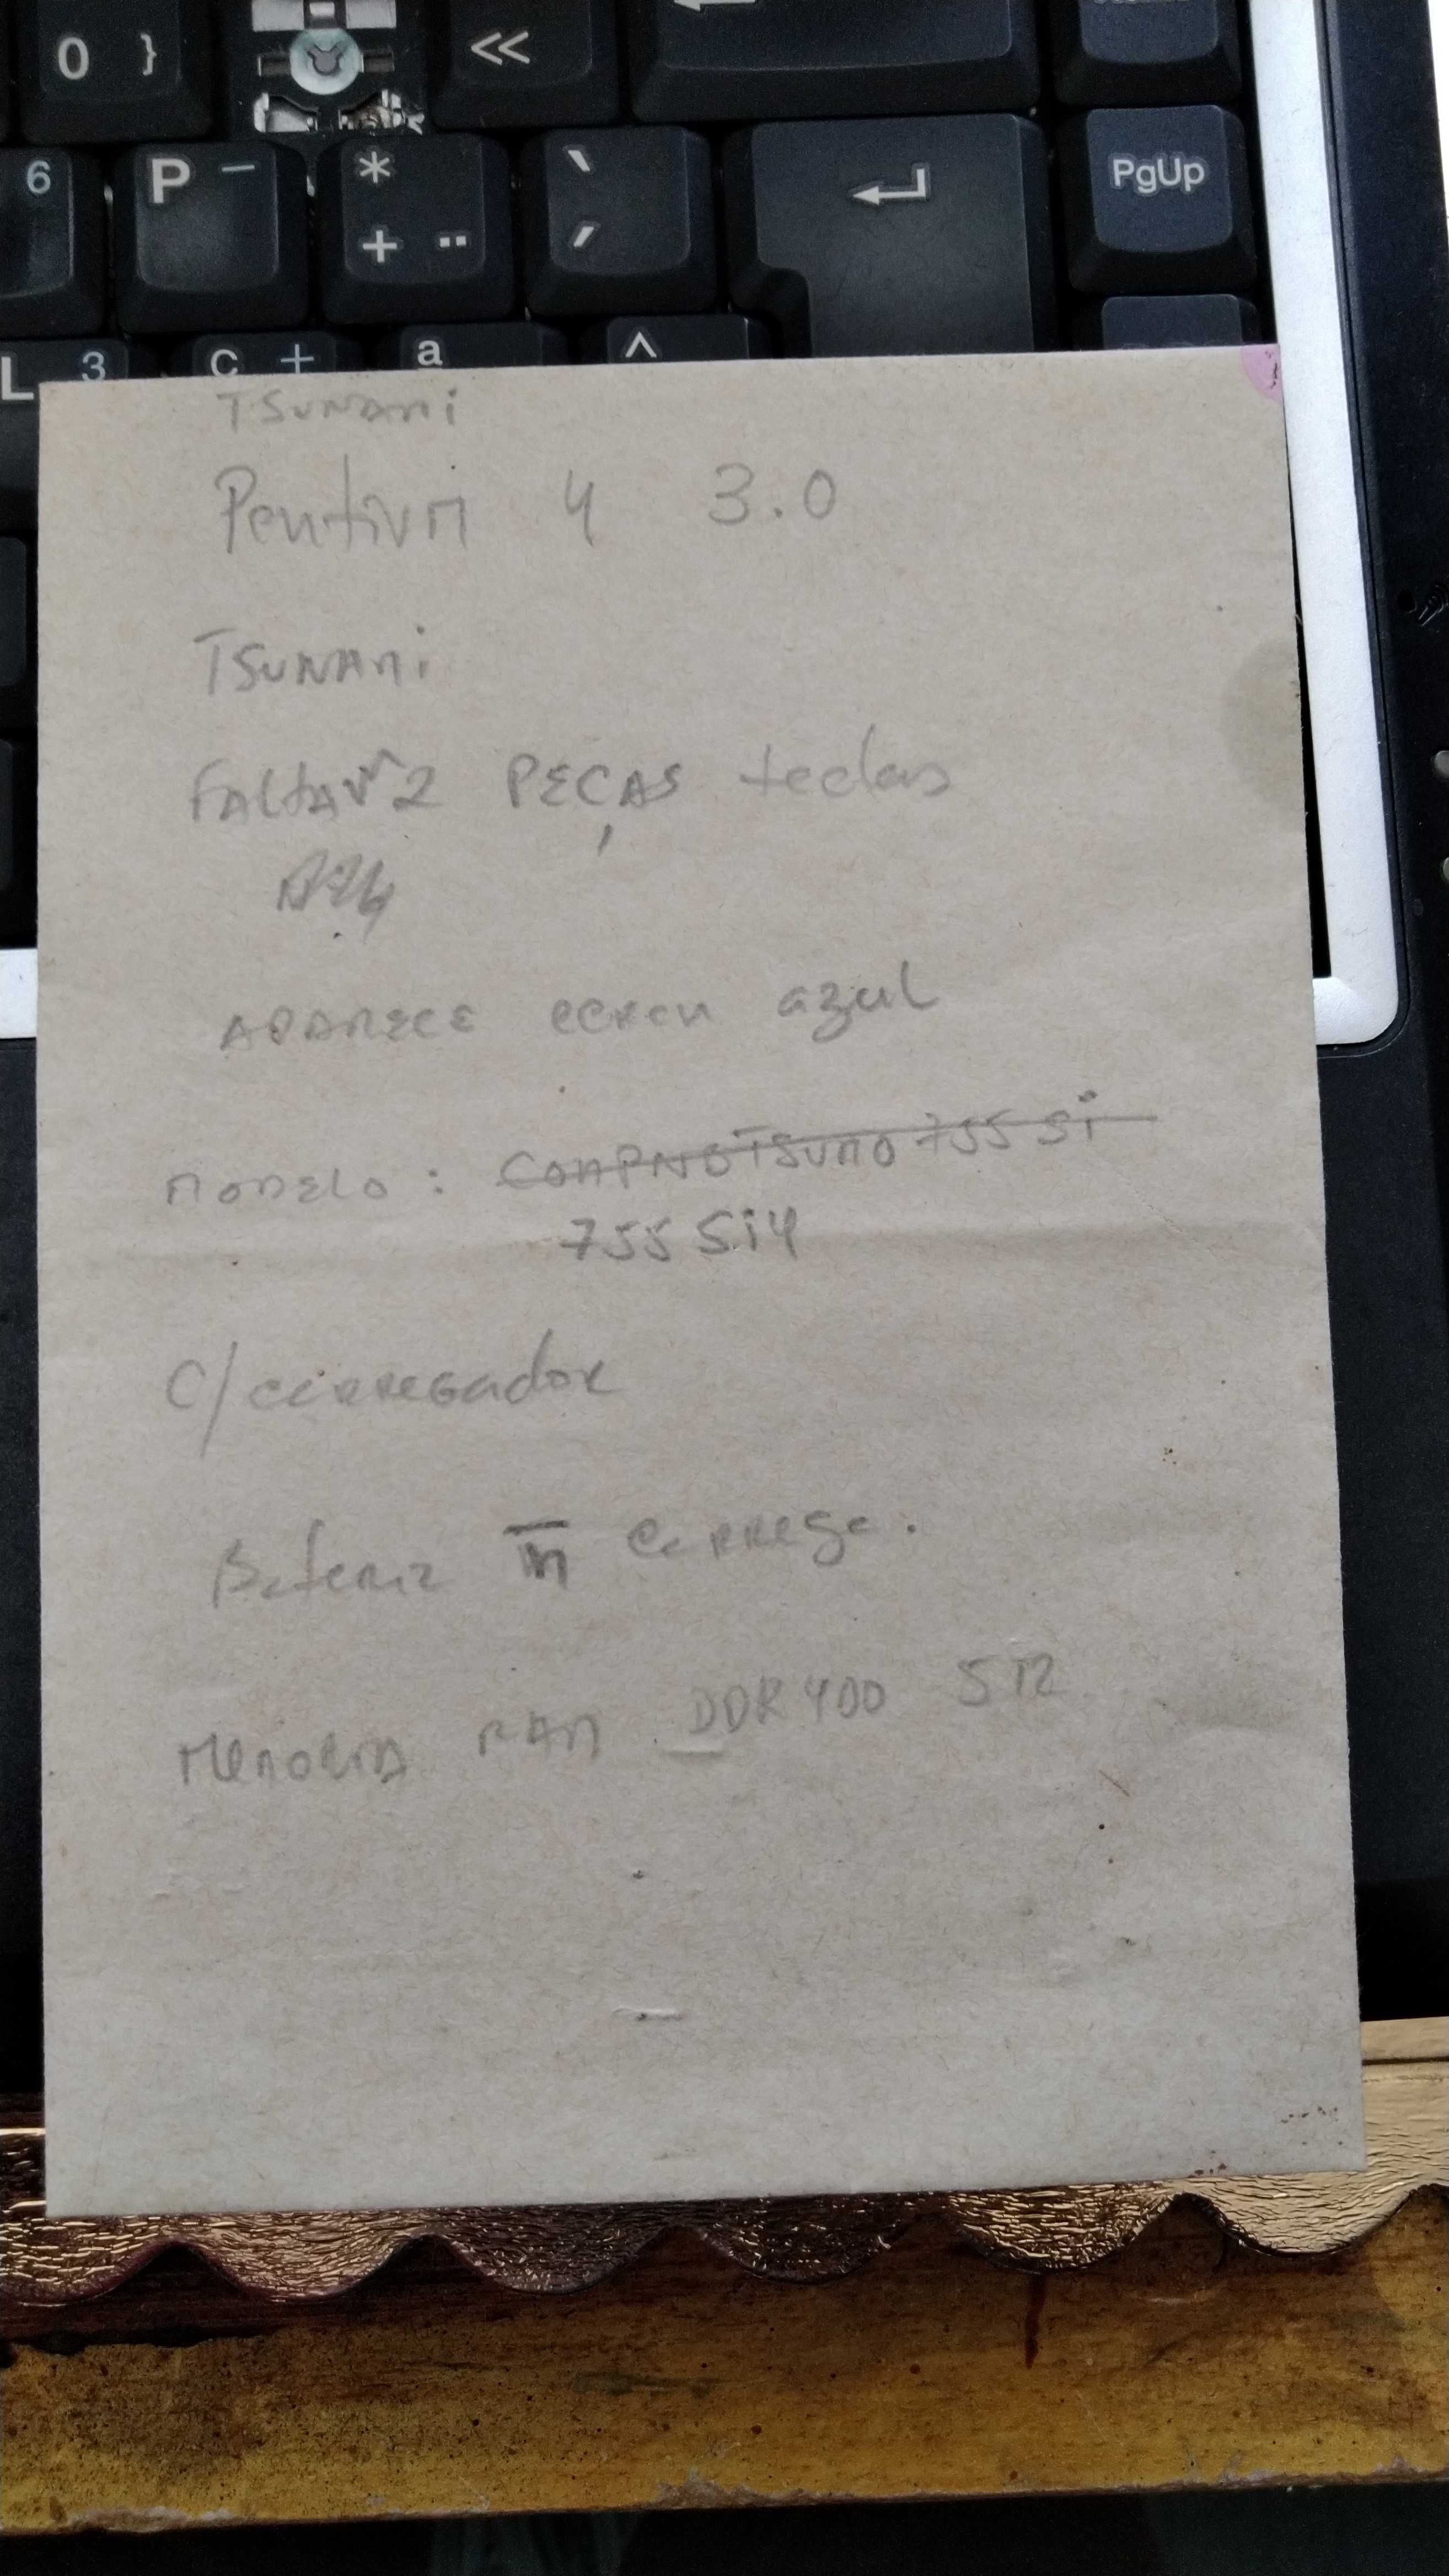 0 }
<<
6 P -
* + ¨
` ´
PgUp
L 3
Ç +
ª
^
TSUNAMI
Pentium 4 3.0
TSUNAMI
FALTAM 2 PEÇAS teclas
APARECE ecran azul
MODELO : COMPNOTSUNO755Si
755Si4
C/carregador
Bateria ñ carrega.
MEMORIA RAM DDR400 512